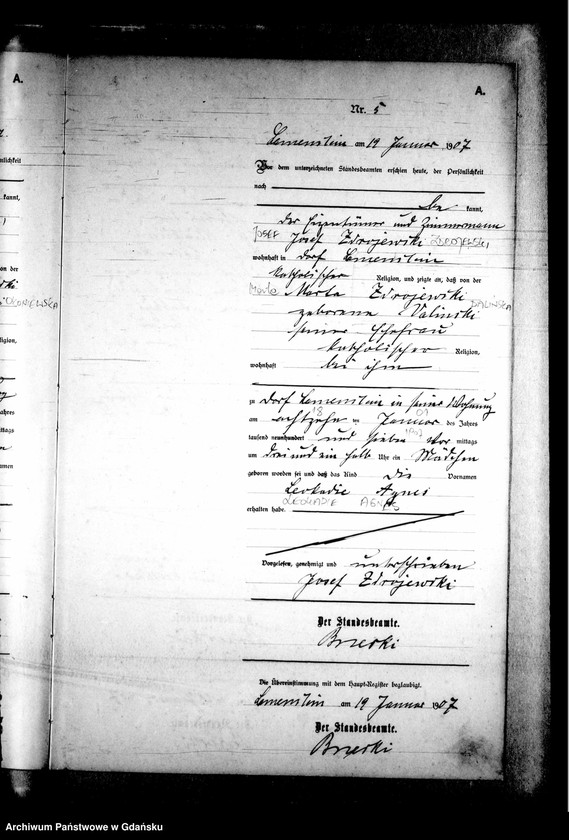 A.
A.
Nr. 5
Lemenstein am 19 Januar 1907
Vor dem unterzeichneten Standesbeamten erschien heute, der Persönlichkeit
nach
be kannt,
der Eigentümer und Zimmermann
JOSEF Josef Zdrojewski ZDROJEWSKI
wohnhaft in Dorf Lemenstein
katholischer Religion, und zeigte an, daß von der
Marta Marta Zdrojewski
geborene Valinski
seiner Ehefrau
katholischer Religion,
wohnhaft bei ihm
zu Dorf Lemenstein in seiner Wohnung
am achtzehn ten Januar des Jahres
18 01
tausend neunhundert und sieben vor mittags
1907
um drei und ein halb Uhr ein Mädchen
geboren worden sei und daß das Kind die Vornamen
Leokadie Agnes
LEOKADIE AGNES
erhalten habe.
Vorgelesen, genehmigt und unterschrieben
Josef Zdrojewski
Der Standesbeamte.
Brzeski
Die Übereinstimmung mit dem Haupt-Register beglaubigt.
Lemenstein am 19 Januar 1907
Der Standesbeamte.
Brzeski
Archiwum Państwowe w Gdańsku